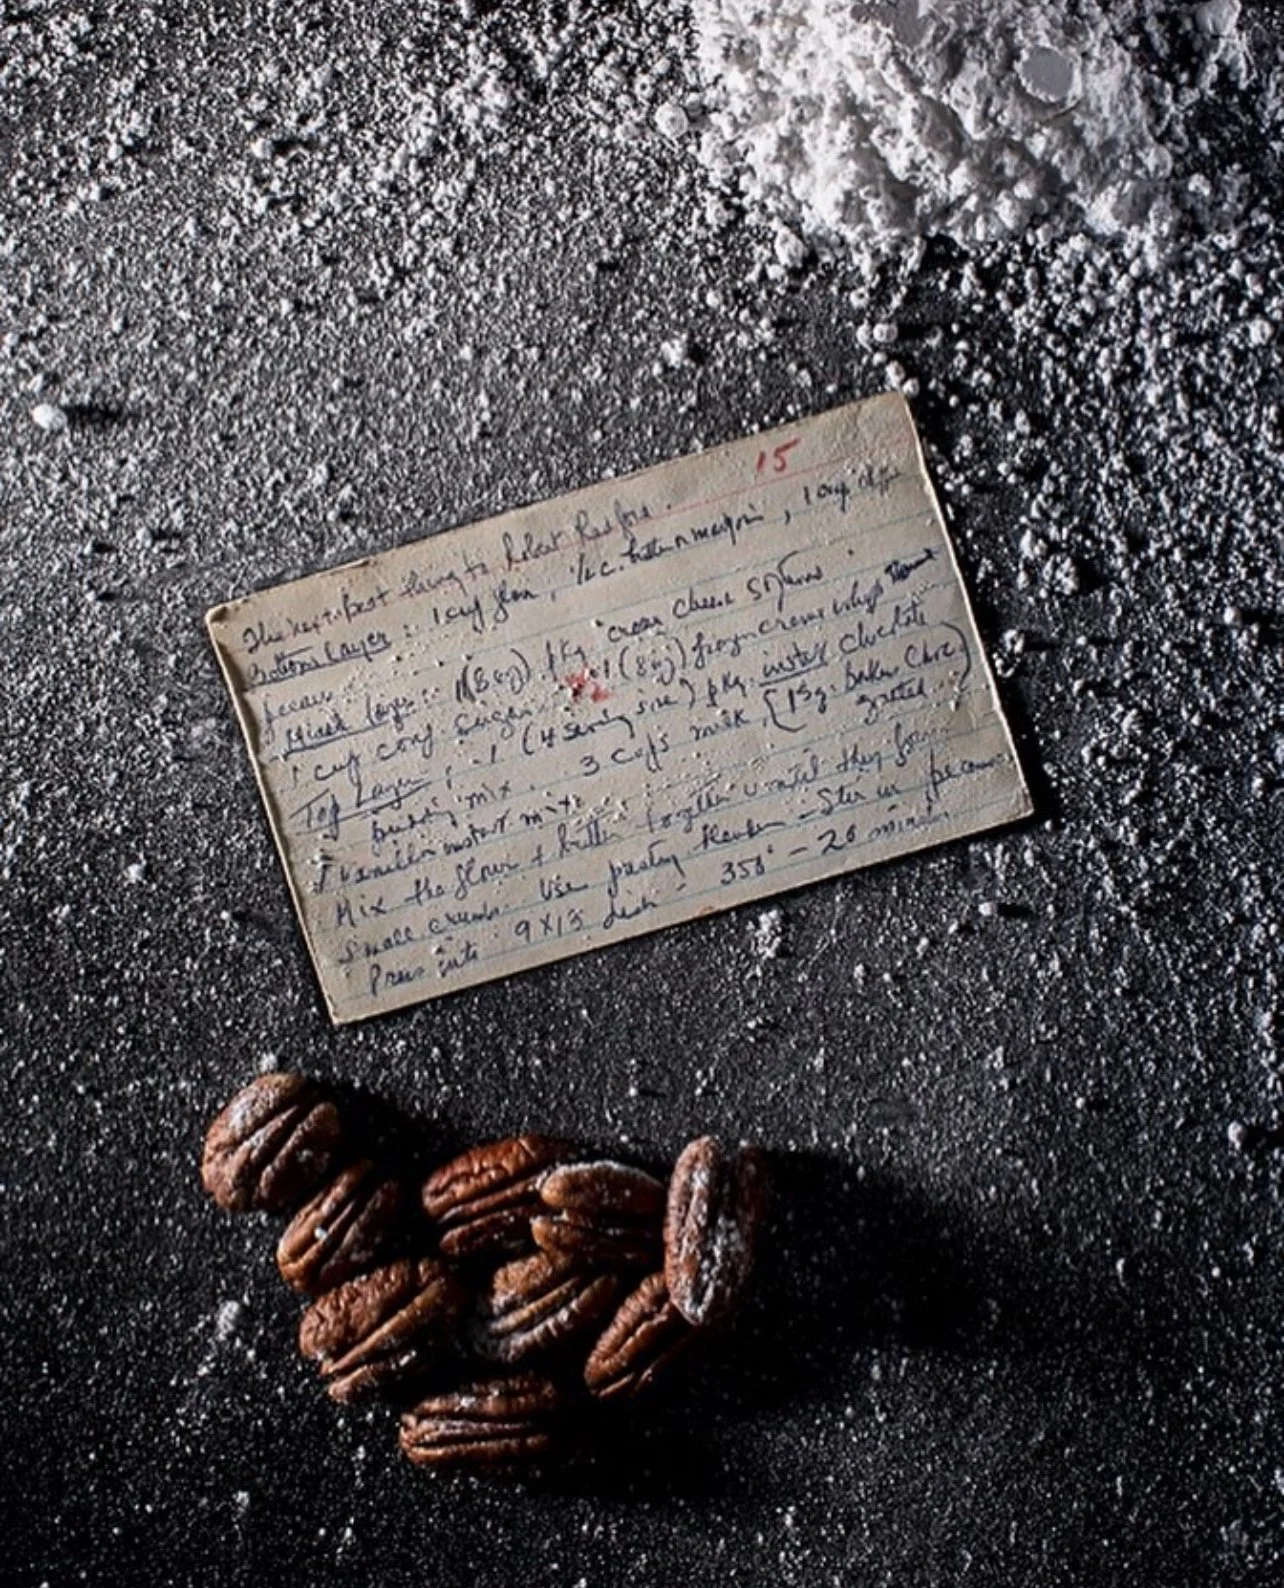 15
The next best thing to Robert Redford.
Bottom Layer: 1 cup flour, 1/2 c. butter or margarine, 1 cup
pecans
layer: 1 (8 oz) pkg cream cheese softened
1 cup conf sugar, 1/2 1 (8 oz) frozen creme whip
Top Layer: 1 (4 serving size) pkg. instant chocolate
pudding mix. 3 cups milk (1 sq. baker choc.
1 vanilla instant mix grated)
Mix the flour & butter together until they form
small crumbs. Use pastry blender - Stir in pecans
Press into 9 X 13 dish - 350° - 20 minutes